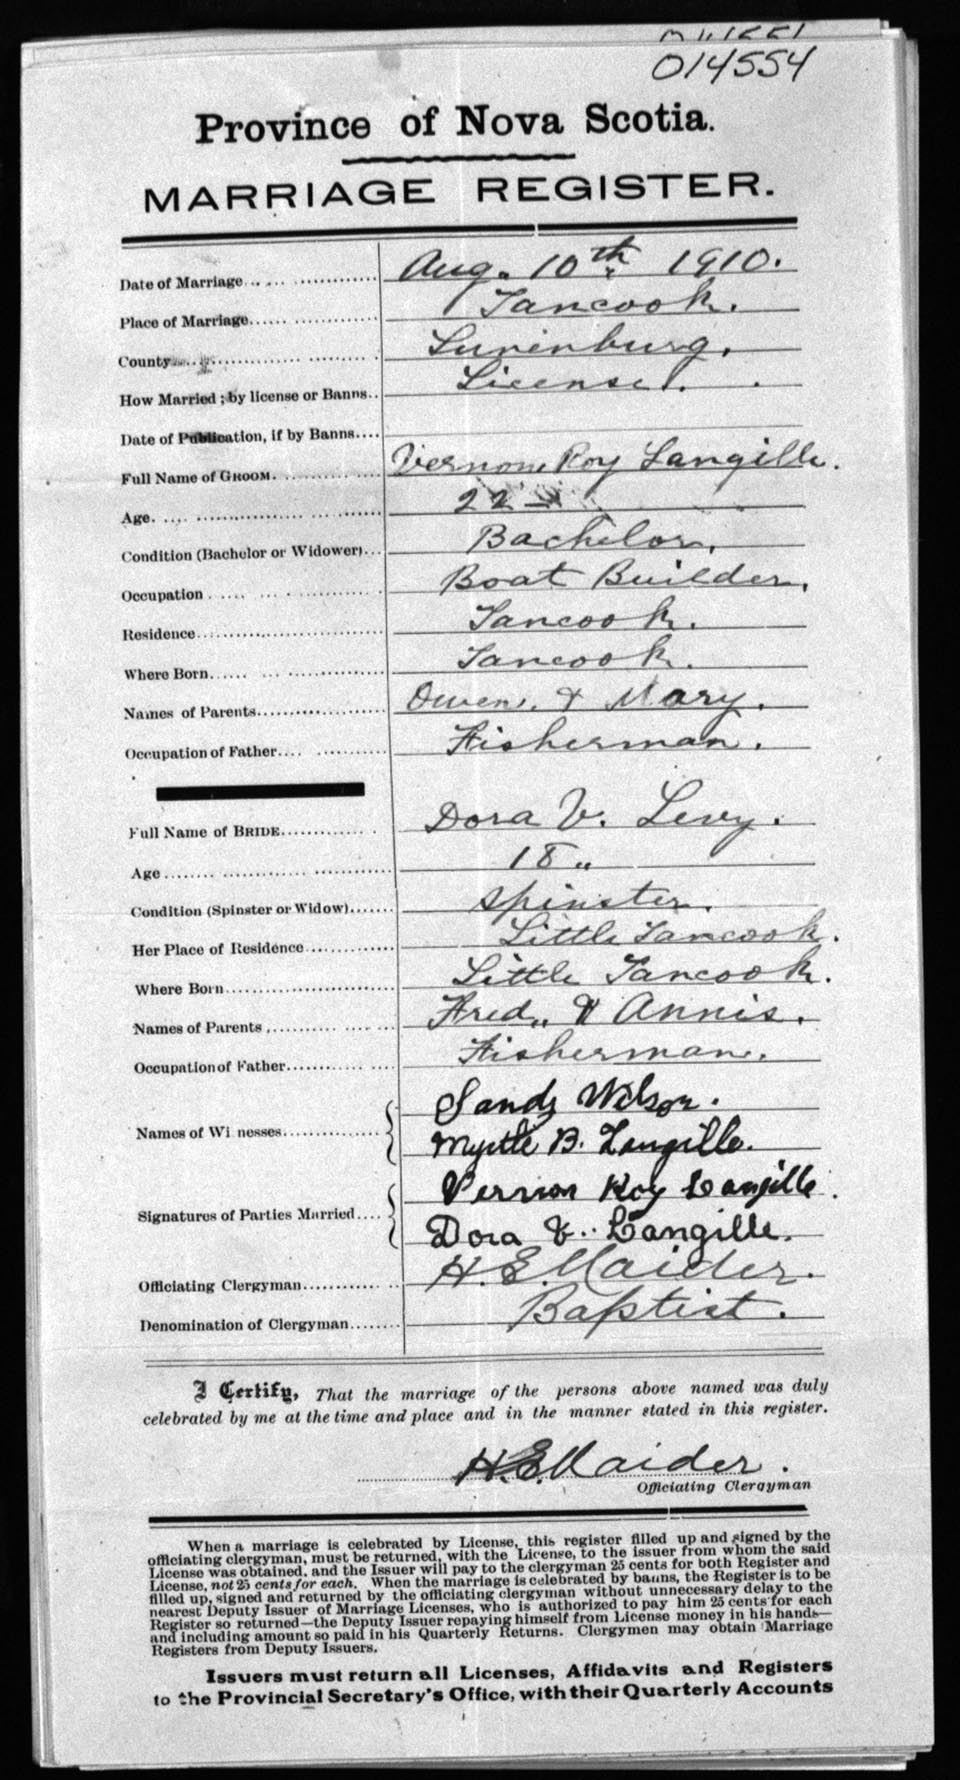 014554
Province of Nova Scotia.
MARRIAGE REGISTER.
Date of Marriage Aug. 10th 1910.
Place of Marriage Tancook.
County Lunenburg.
How Married ; by license or Banns License.
Date of Publication, if by Banns
Full Name of GROOM. Vernon Roy Langille.
Age. 22
Condition (Bachelor or Widower) Bachelor.
Occupation Boat Builder.
Residence Tancook.
Where Born Tancook.
Names of Parents Owen & Mary.
Occupation of Father Fisherman.
Full Name of BRIDE Dora V. Levy.
Age 18 "
Condition (Spinster or Widow) Spinster.
Her Place of Residence Little Tancook.
Where Born Little Tancook.
Names of Parents Fred. & Annis.
Occupation of Father Fisherman.
Sandy Wilson.
Names of Witnesses
Myrtle B. Langille.
Vernon Roy Langille.
Signatures of Parties Married
Dora V. Langille.
Officiating Clergyman H. E. Maider.
Denomination of Clergyman Baptist.
I Certify, That the marriage of the persons above named was duly
celebrated by me at the time and place and in the manner stated in this register.
H. E. Maider.
Officiating Clergyman
When a marriage is celebrated by License, this register filled up and signed by the
officiating clergyman, must be returned, with the License, to the issuer from whom the said
License was obtained, and the Issuer will pay to the clergyman 25 cents for both Register and
License, not 25 cents for each. When the marriage is celebrated by banns, the Register is to be
filled up, signed and returned by the officiating clergyman without unnecessary delay to the
nearest Deputy Issuer of Marriage Licenses, who is authorized to pay him 25 cents for each
Register so returned—the Deputy Issuer repaying himself from License money in his hands—
and including amount so paid in his Quarterly Returns. Clergymen may obtain Marriage
Registers from Deputy Issuers.
Issuers must return all Licenses, Affidavits and Registers
to the Provincial Secretary's Office, with their Quarterly Accounts